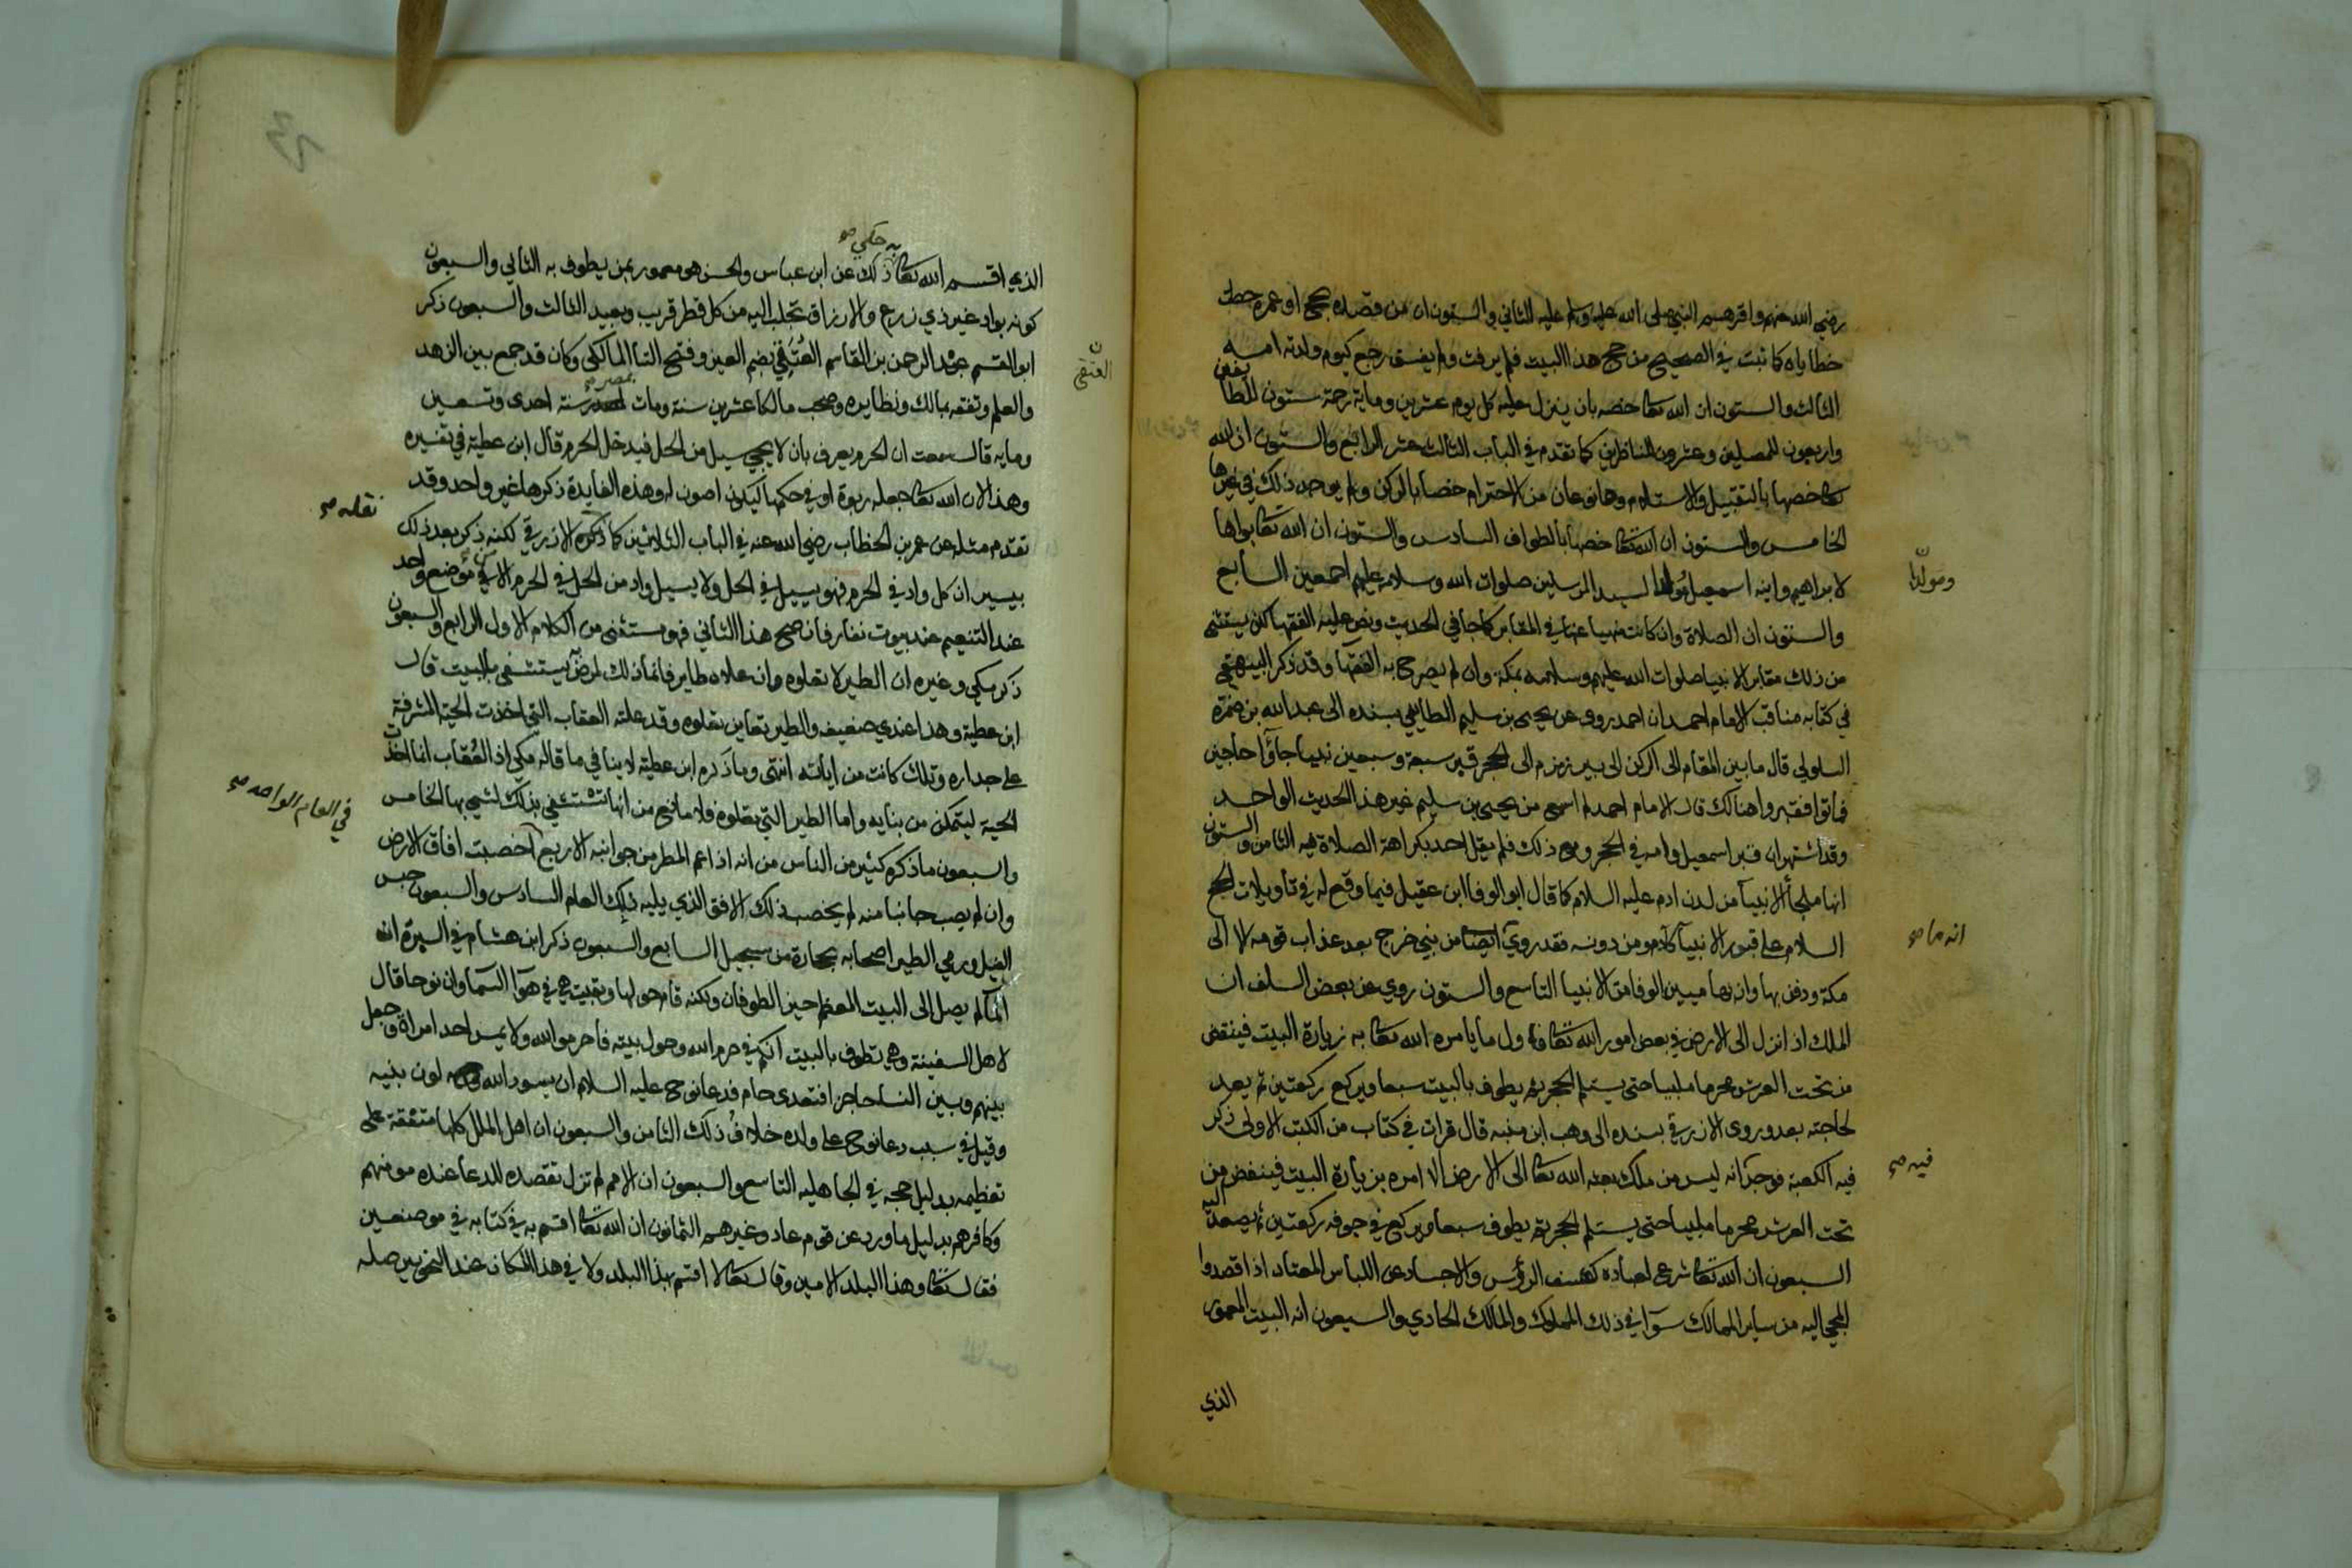 رضي الله عنهم واقرهم النبي صلى الله عليه وسلم عليه الثاني والستون ان من قصده بحج او عمرة حطت
خطاياه كما ثبت في الصحيح من حج هذا البيت فلم يرفث ولم يفسق رجع كيوم ولدته امه
الثالث والستون ان الله تعالى خصه بان ينزل عليه كل يوم عشرين وماية رحمة ستون للطايفين
واربعون للمصلين وعشرون للناظرين كما تقدم في الباب الثالث عشر الرابع والستون ان الله
تعالى خصها بالتقبيل والاستلام وهما نوعان من الاحترام خصا بالركن ولم يوجد ذلك في غيرها
الخامس والستون ان الله تعالى خصها بالطواف السادس والستون ان الله تعالى بواها
لابراهيم وابنه اسمعيل لسيد المرسلين صلوات الله وسلامه عليهم اجمعين السابع
ومولدا
والستون ان الصلاة وان كانت منهيا عنها في المقابر كما جا في الحديث ونص عليه الفقها لكن يستثنى
من ذلك مقابر الانبيا صلوات الله عليهم وسلامه بمكة وان لم يصرح به الفقها وقد ذكر البيهقي
في كتابه مناقب الامام احمد ان احمد روى عن يحيى بن سليم الطايفي بسنده الى عبد الله بن ضمرة
السلولي قال ما بين المقام الى الركن الى بير زمزم الى الحجر قبر سبعة وسبعين نبيا جاؤا حاجين
فماتوا فقبروا هنالك قال الامام احمد لم اسمع من يحيى بن سليم غير هذا الحديث الواحد
وقد اشتهر ان قبر اسمعيل وامه في الحجر ومع ذلك فلم يقل احد بكراهة الصلاة فيه الثامن والستون
انها ملجأ الانبيا من لدن ادم عليه السلام كما قال ابو الوفا ابن عقيل فيما وقع له في تاويلات الحج
السلام على قبور الانبيا كادم ومن دونه فقد روي ايضا من نبي خرج بعد عذاب قومه الا الى
انه ما صح
مكة ودفن بها وان بها ميين الوفا من الانبيا التاسع والستون روي عن بعض السلف ان
الملك اذا نزل الى الارض في بعض امور الله تعالى فاول ما يامره الله تعالى به زيارة البيت فينقض
من تحت العرش محرما ملبيا حتى يستلم الحجر ثم يطوف بالبيت سبعا ويركع ركعتين ثم يعمد
لحاجته بعد وروى الازرقي بسنده الى وهب ابن منبه قال قرات في كتاب من الكتب الاولى ذكر
فيه الكعبة فوجد انه ليس من ملك بعثه الله تعالى الى الارض الا امره بزيارة البيت فينقض من
فيه صح
تحت العرش محرما ملبيا حتى يستلم الحجر ثم يطوف سبعا ويركع في جوفه ركعتين ثم يصعد
السبعون ان الله تعالى شرع لعباده كشف الرؤس والاجساد عن اللباس المعتاد اذا قصدوا
المجي اليه من ساير الممالك سوآ في ذلك المملوك والمالك الحادي والسبعون انه البيت المعمور
الذي
الذي اقسم الله تعالى به حكي صح ذلك عن ابن عباس والحسن هو معمور بمن يطوف به الثاني والسبعون
كونه بواد غير ذي زرع والارزاق تجلب اليه من كل قطر قريب وبعيد الثالث والسبعون ذكر
ابو القسم عبد الرحمن بن القاسم العُتَقي بضم العين وفتح التا المالكي وكان قد جمع بين الزهد
ن العتقي
والعلم وتفقه بمالك ونظايره وصحب مالكا عشرين سنة ومات بمصر صح سنة احدى وتسعين
وماية قال سمعت ان الحرم يعرف بان لا يجي سيل من الحل فيدخل الحرم قال ابن عطية في تفسيره
وهذا لان الله تعالى جعله ربوة او في حكمها ليكون اصون له وهذه الفايدة ذكرها غير واحد وقد
نقله صح
تقدم مثله عن عمر بن الخطاب رضي الله عنه في الباب الثلاثين كما ذكره الازرقي لكنه ذكر بعد ذلك
بيسير ان كل واد في الحرم فهو يسيل في الحل ولا يسيل واد من الحل في الحرم الا في موضع واحد
عند التنعيم عند بيوت نفار فان صح هذا الثاني فهو مستثنى من الكلام الاول الرابع والسبعون
ذكر مكي وغيره ان الطير لا تعلوه وان علاه طاير فانما ذلك لمرض يستشفي بالبيت قال
ابن عطية وهذا عندي ضعيف والطير تعاين تعلوه وقد علته العقاب التي اخذت الحية المشرفة
على جداره وتلك كانت من اياته انتهى وما ذكره ابن عطية لا ينافي ما قاله مكي اذ العُقاب انما اخذت
الحية ليتمكن من بنايه واما الطير التي تعلوه فلا مانع من انها تستشفي بذلك لشي بها الخامس
في العام الواحد صح
والسبعون ما ذكره كثير من الناس من انه اذا عم المطر من جوانبه الاربع اخصبت افاق الارض
وان لم يصب جانبا منه لم يخصب ذلك الافق الذي يليه ذلك العام السادس والسبعون حبس
الفيل ورمي الطير اصحابه بحجارة من سجيل السابع والسبعون ذكر ابن هشام في السيرة ان
المآ لم يصل الى البيت المعظم حين الطوفان ولكنه قام حولها وبقيت هي في هوآ السما وان نوحا قال
لاهل السفينة وهي تطوف بالبيت انكم في حرم الله وحول بيته فاحرموا لله ولا يمس احد امراة وجعل
بينهم وبين النسا حاجزا فتعدى حام فدعا نوح عليه السلام ان يسود الله لون بنيه
وقيل في سبب دعا نوح على ولده خلاف ذلك الثامن والسبعون ان اهل الملل كلها متفقة على
تعظيمه بدليل حجه في الجاهلية التاسع والسبعون ان الامم لم تزل تقصده للدعا عنده مومنهم
وكافرهم بدليل ما ورد عن قوم عاد وغيرهم الثمانون ان الله تعالى اقسم به في كتابه في موضعين
فقال تعالى وهذا البلد الامين وقال تعالى لا اقسم بهذا البلد ولا في هذا المكان عند النحويين صلة